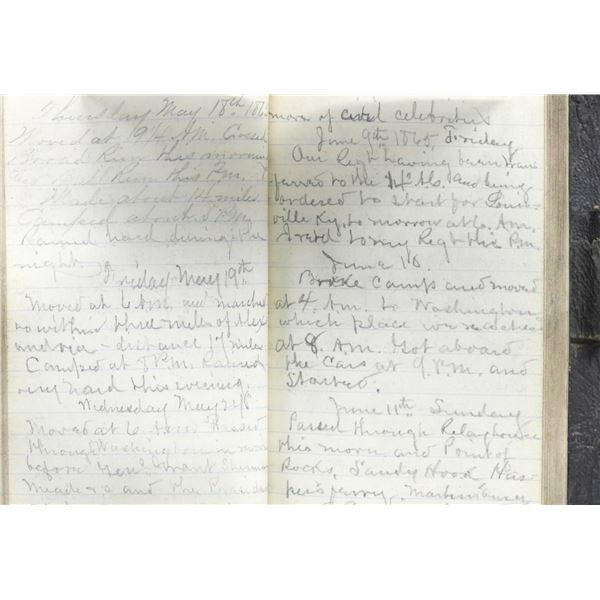 Thursday May 18th 1865
Moved at 9 1/4 A.M. Crossed
Broad Run this morning
Bull Run this P.M.
Made about 14 miles
Camped about 5 P.M.
Rained hard during the
night
Friday May 19th
Moved at 6 A.M. and marched
to within three miles of Alex
andria - distance 17 miles
Camped at 5 P.M. Rained
very hard this evening.
Wednesday May 24th
Moved at 6 A.M. Passed
through Washington
before Gens Grant Sherman
Meade &c and the
more of civil celebrities
June 9th 1865 Friday
Our Regt having been trans
ferred to the 14th A.C. and being
ordered to start for Louis-
ville Ky. to morrow at 6 A.M.
I retd to my Regt this P.M.
June 10
Broke Camp and moved
at 4 A.M. to Washington
which place we reached
at 8 A.M. Got aboard
the Cars at 9 P.M. and
Started
June 11th Sunday
Passed through Relayhouse
this morn and Point of
Rocks, Sandy Hook Har-
pers ferry, Martinsburg